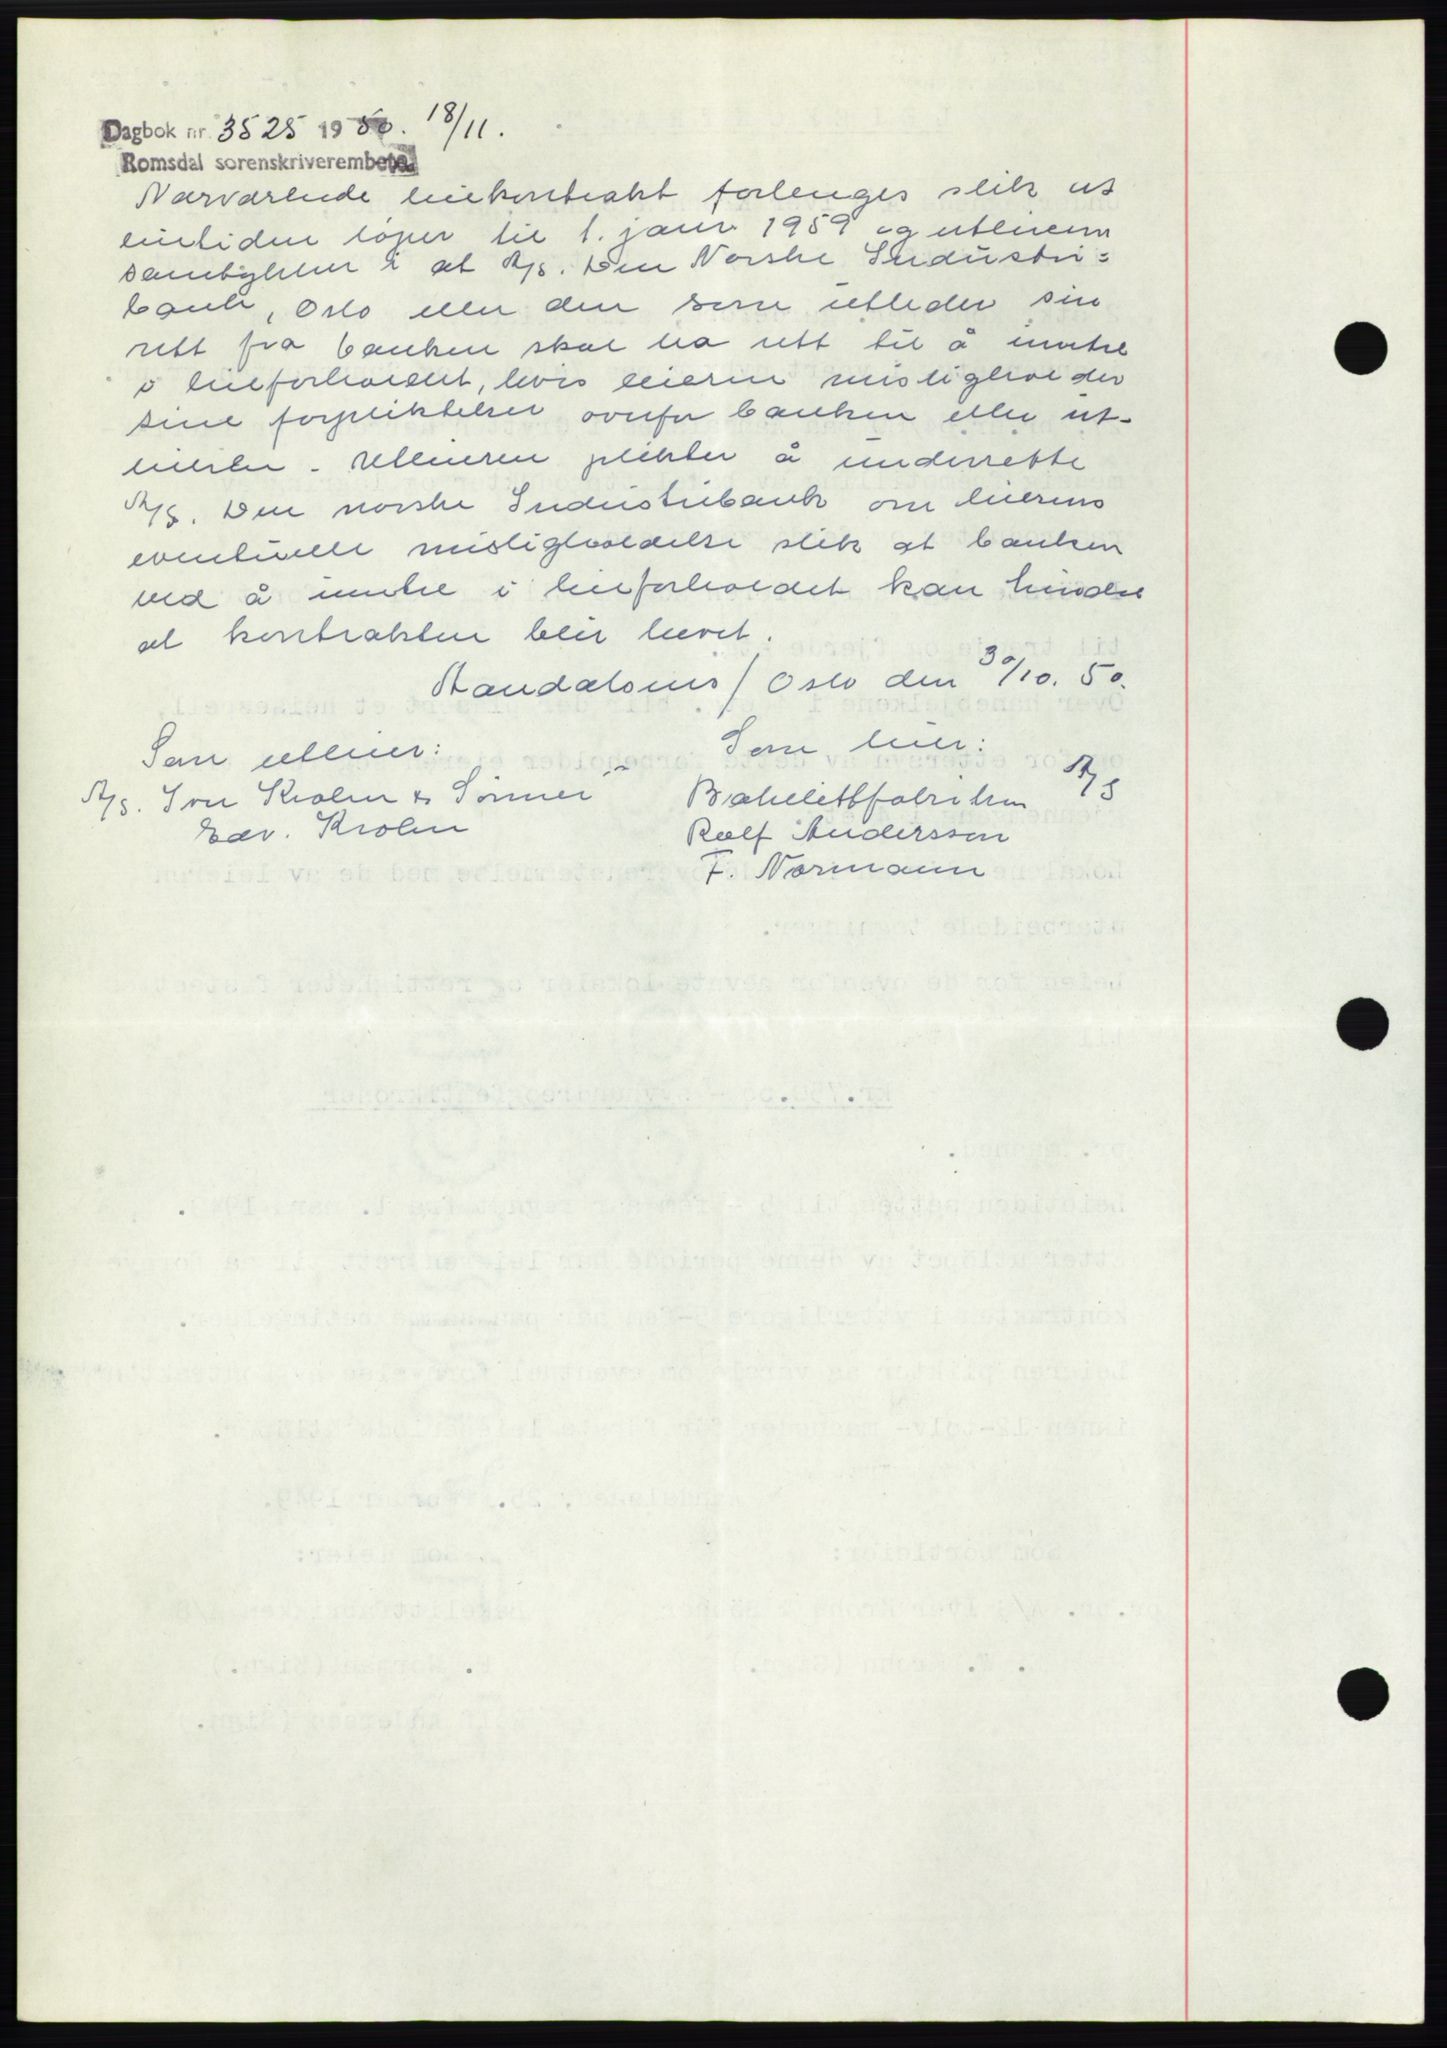 Dagbok nr. 3525 1950. 18/11.
Romsdal sorenskriverembete
Nærværende leiekontrakt forlenges slik at
leietiden løper til 1. jan. 1959 og utleieren
samtykker i at A/S. Den Norske Industri=
bank, Oslo eller den som utleder sin
rett fra banken skal ha rett til å inntre
i leieforholdet, hvis leieren misligholder
sine forpliktelser overfor banken eller ut-
leieren. Utleieren plikter å underrette
A/S. Den norske Industribank om leierens
eventuelle misligholdelse slik at banken
ved å inntre i leieforholdet kan hindre
at kontrakten blir hevet.
Aandalsnes / Oslo den 30/10. 50.
Som utleier: Som leier:
A/S. Iver Krohn & Sønner Bakelittfabrikken A/S
Edv. Krohn Rolf Anderssen
F. Normann